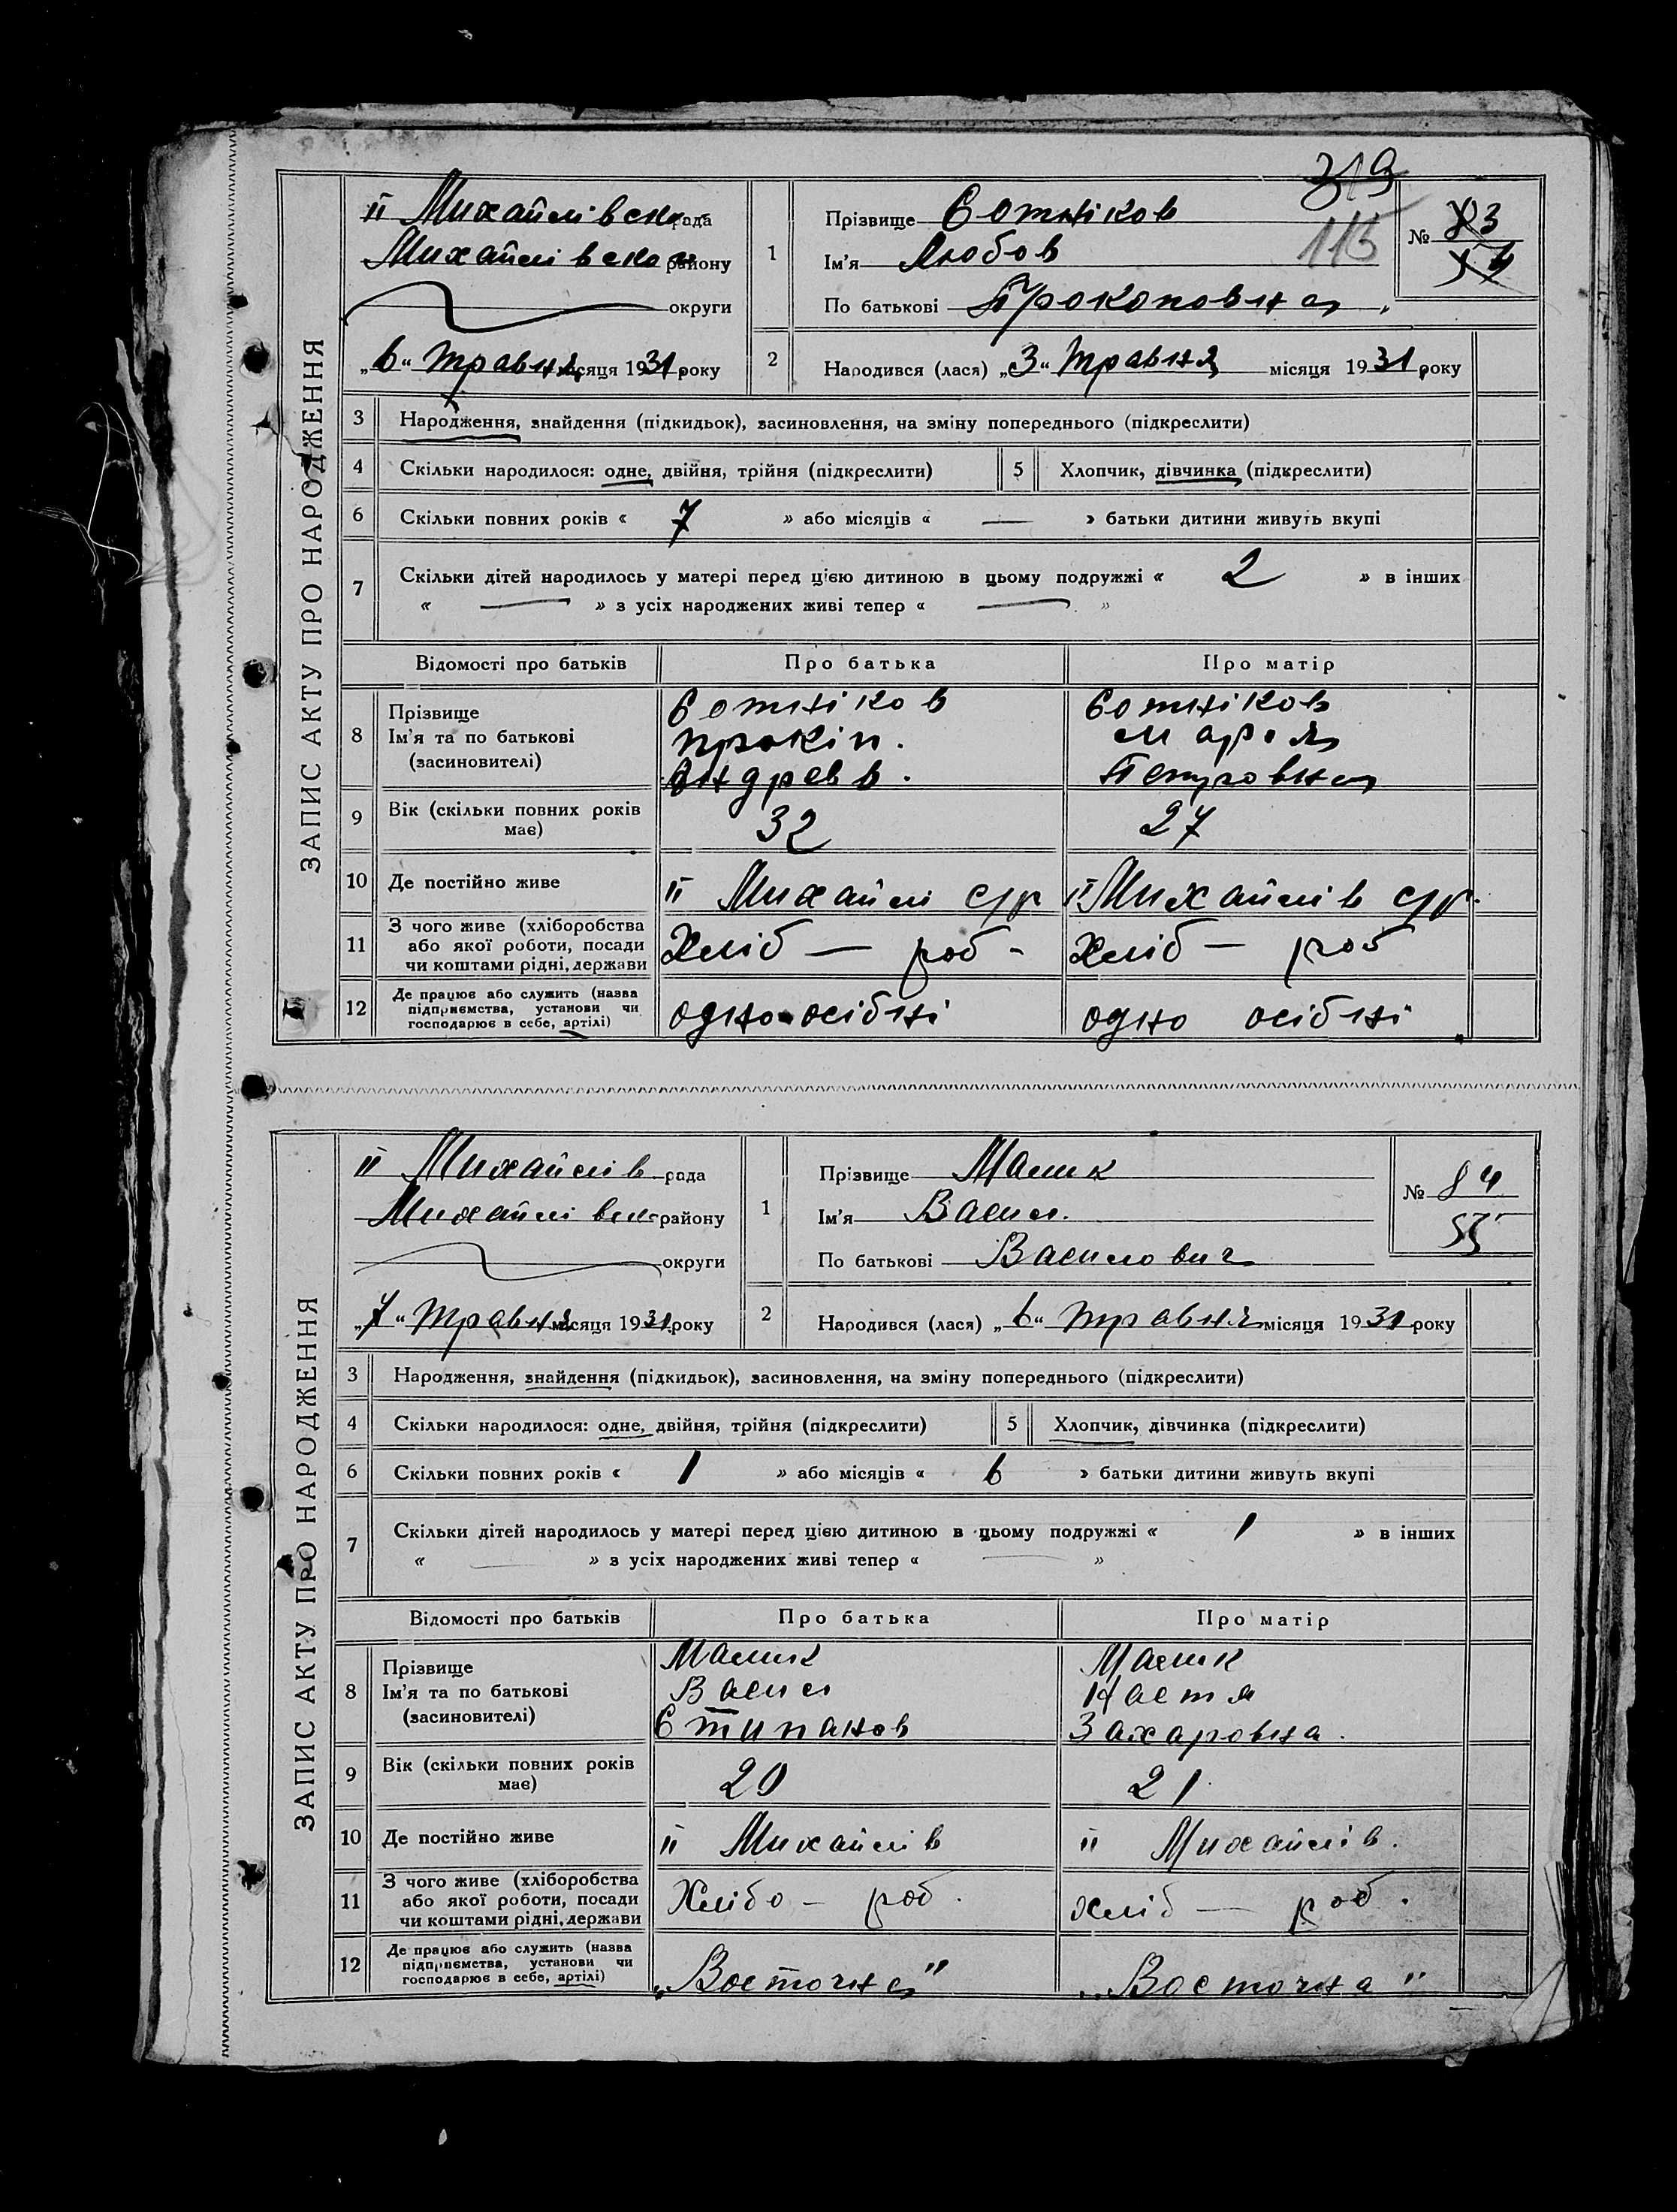 319
ЗАПИС АКТУ ПРО НАРОДЖЕННЯ
ІІ Михайлівська рада
Михайлівского району
округи
„6“ травня місяця 1931 року
1
Прізвище Сотніков
Ім'я Любов
115
По батькові Прокоповна
№ 83
54
2
Народився (лася) „3“ травня місяця 1931 року
3 Народження, знайдення (підкидьок), засиновлення, на зміну попереднього (підкреслити)
4 Скільки народилося: одне, двійня, трійня (підкреслити) 5 Хлопчик, дівчинка (підкреслити)
6 Скільки повних років « 7 » або місяців « — » батьки дитини живуть вкупі
7 Скільки дітей народилось у матері перед цією дитиною в цьому подружжі « 2 » в інших
« — » з усіх народжених живі тепер « — »
Відомості про батьків Про батька Про матір
8 Прізвище Сотніков Сотніков
Ім'я та по батькові Прокіп. Мария
(засиновителі) Андреєв. Петровна
9 Вік (скільки повних років має) 32 27
10 Де постійно живе ІІ Михайлі с/р ІІ Михайлів с/р.
11 З чого живе (хліборобства
або якої роботи, посади Хліб — роб - Хліб — роб
чи коштами рідні, держави
12 Де працює або служить (назва
підприємства, установи чи одноосібні одно осібні
господарює в себе, артілі)
ЗАПИС АКТУ ПРО НАРОДЖЕННЯ
ІІ Михайлів рада
Михайлівск району
округи
„7“ травня місяця 1931 року
1
Прізвище Малик
Ім'я Васил.
По батькові Василович
№ 84
55
2
Народився (лася) „6“ травня місяця 1931 року
3 Народження, знайдення (підкидьок), засиновлення, на зміну попереднього (підкреслити)
4 Скільки народилося: одне, двійня, трійня (підкреслити) 5 Хлопчик, дівчинка (підкреслити)
6 Скільки повних років « 1 » або місяців « 6 » батьки дитини живуть вкупі
7 Скільки дітей народилось у матері перед цією дитиною в цьому подружжі « 1 » в інших
« — » з усіх народжених живі тепер « — »
Відомості про батьків Про батька Про матір
8 Прізвище Малик Малик
Ім'я та по батькові Васил Настя
(засиновителі) Стипанов Захаровна.
9 Вік (скільки повних років має) 20 21
10 Де постійно живе ІІ Михайлів ІІ Михайлів.
11 З чого живе (хліборобства
або якої роботи, посади Хлібо - роб. хліб — роб.
чи коштами рідні, держави
12 Де працює або служить (назва
підприємства, установи чи „Восточна" „Восточна"
господарює в себе, артілі)